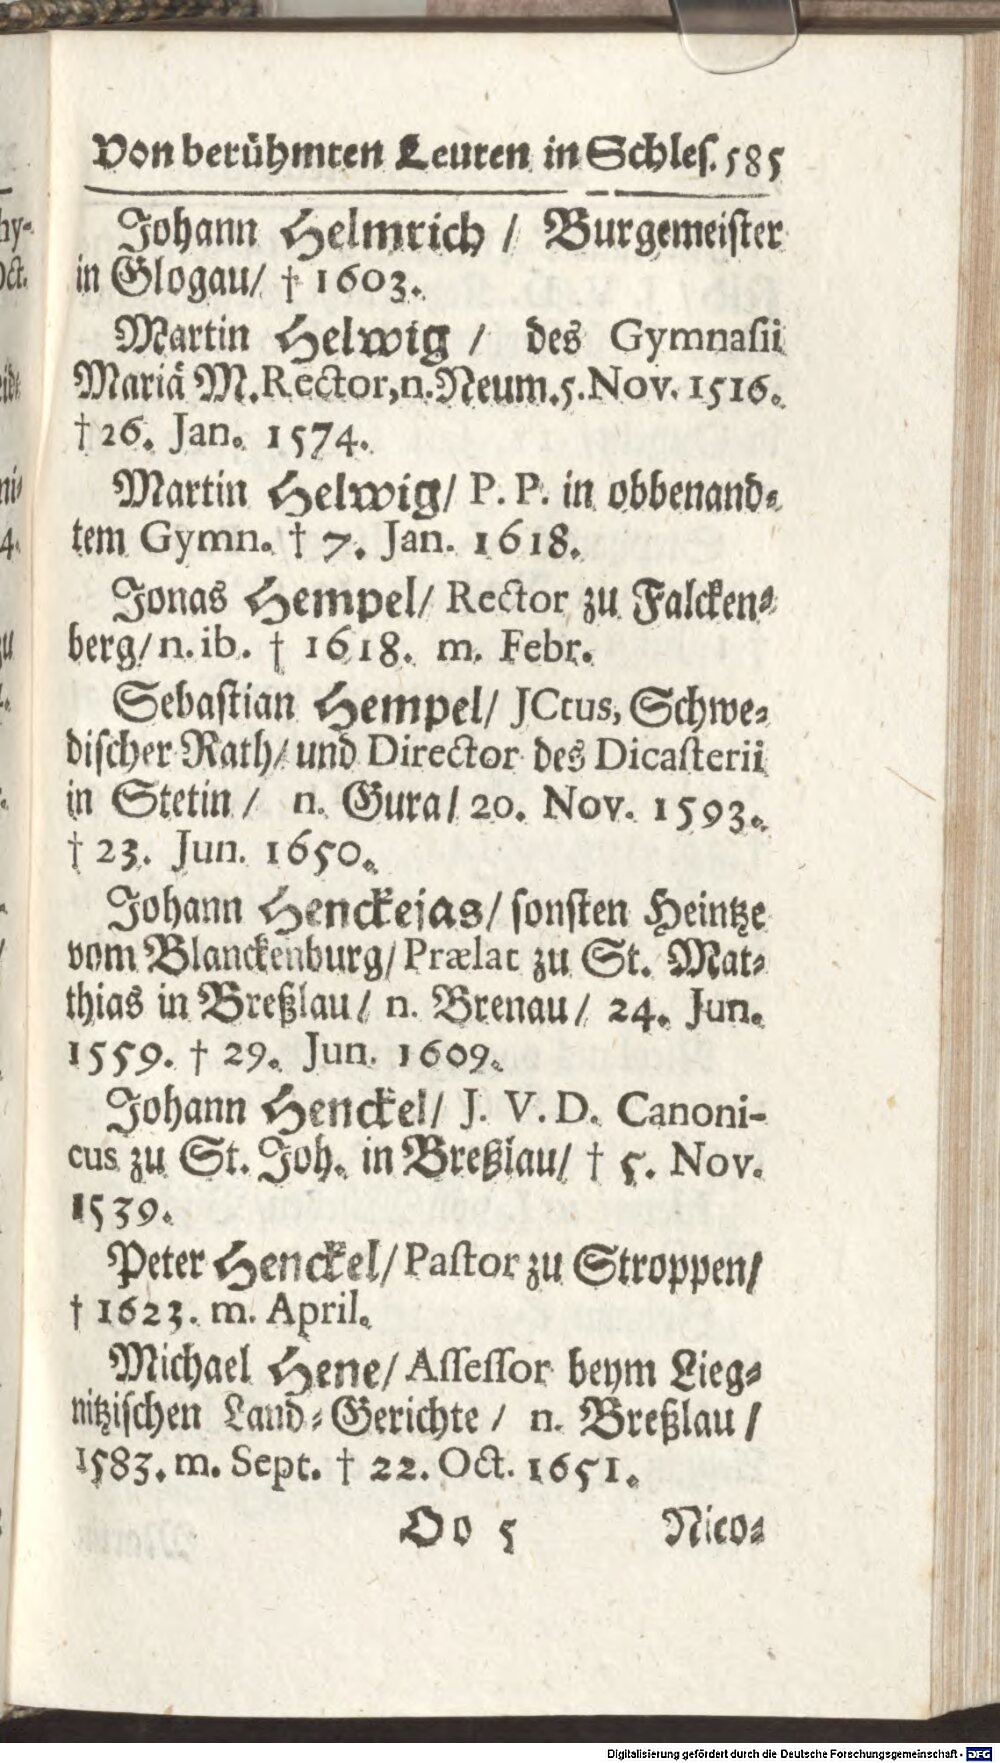 Von berühmten Leuten in Schles. 585
Johann Helmrich / Burgemeister
in Glogau / † 1603.
Martin Helwig / des Gymnasii
Mariä M. Rector, n. Neum. 5. Nov. 1516.
† 26. Jan. 1574.
Martin Helwig / P. P. in obbenand-
tem Gymn. † 7. Jan. 1618.
Jonas Hempel / Rector zu Falcken-
berg / n. ib. † 1618. m. Febr.
Sebastian Hempel / JCtus, Schwe-
discher Rath / und Director des Dicasterii
in Stetin / n. Gura / 20. Nov. 1593.
† 23. Jun. 1650.
Johann Henckejas / sonsten Heintze
vom Blanckenburg / Prælat zu St. Mat-
thias in Breßlau / n. Brenau / 24. Jun.
1559. † 29. Jun. 1609.
Johann Henckel / J. V. D. Canoni-
cus zu St. Joh. in Breßlau / † 5. Nov.
1539.
Peter Henckel / Pastor zu Stroppen /
† 1623. m. April.
Michael Hene / Assessor beym Lieg-
nitzischen Land-Gerichte / n. Breßlau /
1583. m. Sept. † 22. Oct. 1651.
Oo 5 Nico-
Digitalisierung gefördert durch die Deutsche Forschungsgemeinschaft - DFG